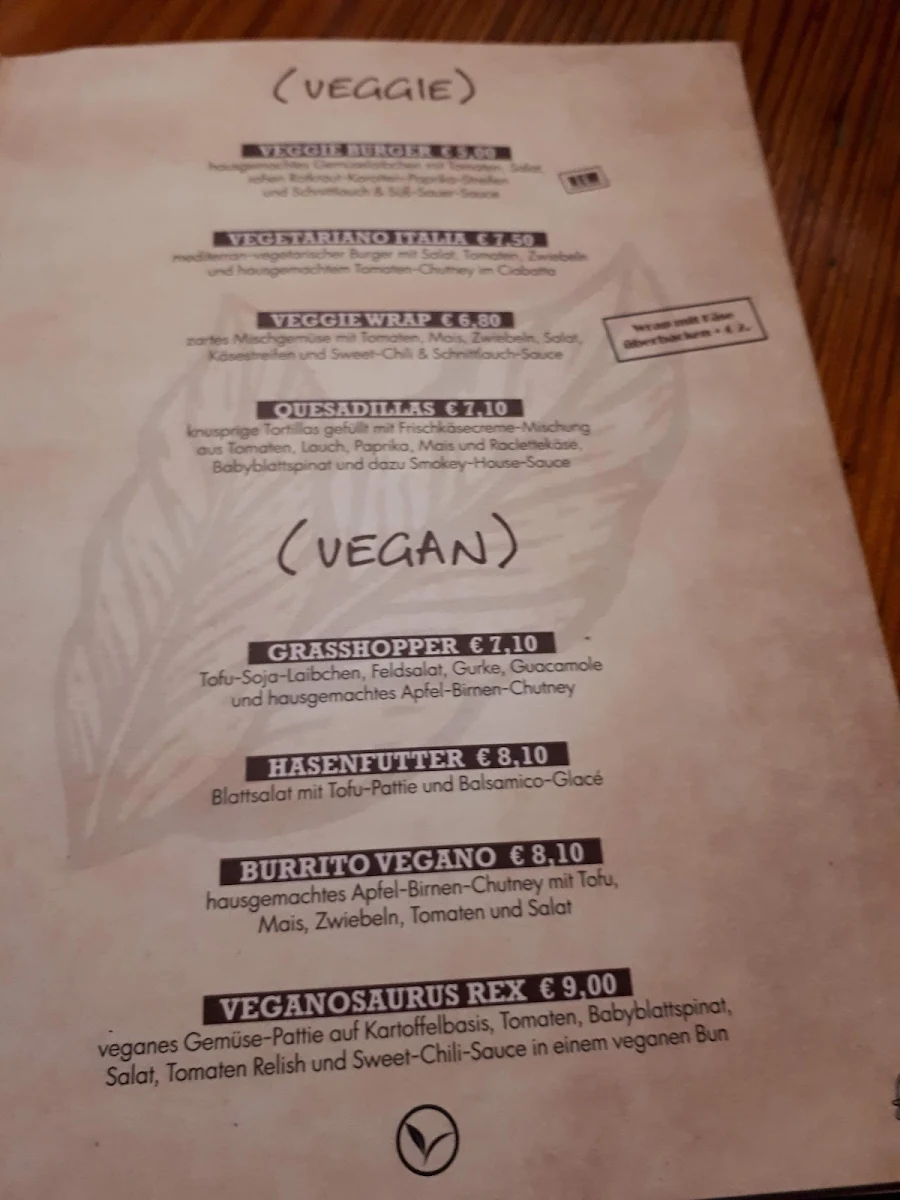 (VEGGIE)
VEGGIE BURGER € 5,00
hausgemachtes Gemüselaibchen mit Tomaten, Salat,
rohen Rotkraut-Karotten-Paprika-Streifen
und Schnittlauch & Süß-Sauer-Sauce
VEGETARIANO ITALIA € 7,50
mediterran-vegetarischer Burger mit Salat, Tomaten, Zwiebeln
und hausgemachtem Tomaten-Chutney im Ciabatta
VEGGIE WRAP € 6,80
zartes Mischgemüse mit Tomaten, Mais, Zwiebeln, Salat,
Käsestreifen und Sweet-Chili & Schnittlauch-Sauce
Wrap mit Käse
überbacken + € 2,-
QUESADILLAS € 7,10
knusprige Tortillas gefüllt mit Frischkäsecreme-Mischung
aus Tomaten, Lauch, Paprika, Mais und Raclettekäse,
Babyblattspinat und dazu Smokey-House-Sauce
(VEGAN)
GRASSHOPPER € 7,10
Tofu-Soja-Laibchen, Feldsalat, Gurke, Guacamole
und hausgemachtes Apfel-Birnen-Chutney
HASENFUTTER € 8,10
Blattsalat mit Tofu-Pattie und Balsamico-Glacé
BURRITO VEGANO € 8,10
hausgemachtes Apfel-Birnen-Chutney mit Tofu,
Mais, Zwiebeln, Tomaten und Salat
VEGANOSAURUS REX € 9,00
veganes Gemüse-Pattie auf Kartoffelbasis, Tomaten, Babyblattspinat,
Salat, Tomaten Relish und Sweet-Chili-Sauce in einem veganen Bun